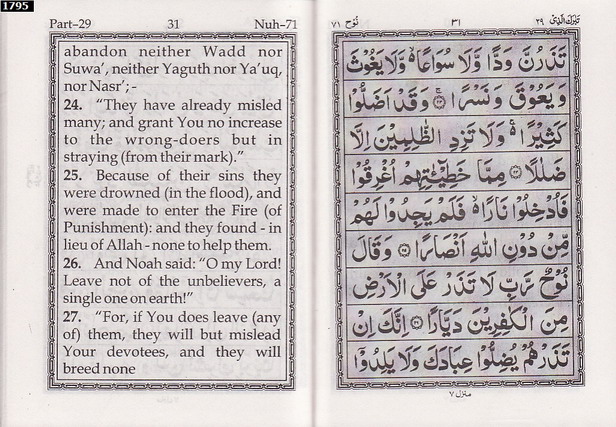 1795
Part–29 31 Nuh-71
abandon neither Wadd nor
Suwa’, neither Yaguth nor Ya’uq,
nor Nasr’;-
24. “They have already misled
many; and grant You no increase
to the wrong-doers but in
straying (from their mark).”
25. Because of their sins they
were drowned (in the flood), and
were made to enter the Fire (of
Punishment): and they found - in
lieu of Allah - none to help them.
26. And Noah said: “O my Lord!
Leave not of the unbelievers, a
single one on earth!”
27. “For, if You does leave (any
of) them, they will but mislead
Your devotees, and they will
breed none
تبٰرك الذی ٢٩ ٣١ نُوْح ٧١
تَذَرُنَّ وَدًّا وَّلَا سُوَاعًا ۙ وَّلَا يَغُوْثَ
وَيَعُوْقَ وَنَسْرًا ۚ ﴿٢٣﴾ وَقَدْ اَضَلُّوْا
كَثِيْرًا ۚ وَلَا تَزِدِ الظّٰلِمِيْنَ اِلَّا
ضَلٰلًا ﴿٢٤﴾ مِمَّا خَطِيْٓـٰٔتِهِمْ اُغْرِقُوْا
فَاُدْخِلُوْا نَارًا ۙ فَلَمْ يَجِدُوْا لَهُمْ
مِّنْ دُوْنِ اللّٰهِ اَنْصَارًا ﴿٢٥﴾ وَقَالَ
نُوْحٌ رَّبِّ لَا تَذَرْ عَلَى الْاَرْضِ
مِنَ الْكٰفِرِيْنَ دَيَّارًا ﴿٢٦﴾ اِنَّكَ اِنْ
تَذَرْهُمْ يُضِلُّوْا عِبَادَكَ وَلَا يَلِدُوْٓا
منزل ٧